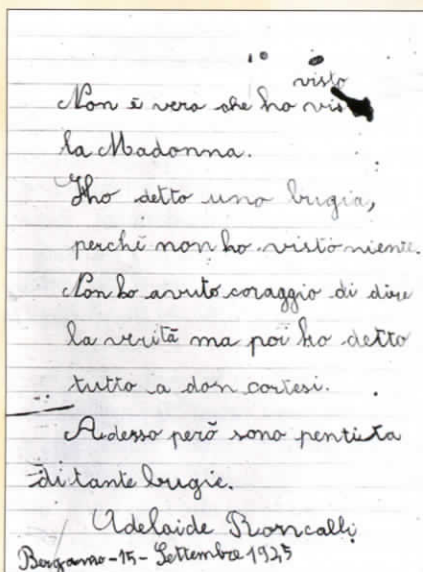 visto
Non è vero che ho vis
la Madonna.
Ho detto una bugia,
perché non ho visto niente.
Non ho avuto coraggio di dire
la verità ma poi ho detto
tutto a don cortesi.
Adesso però sono pentita
di tante bugie.
Adelaide Roncalli
Bergamo - 15 - Settembre 1945